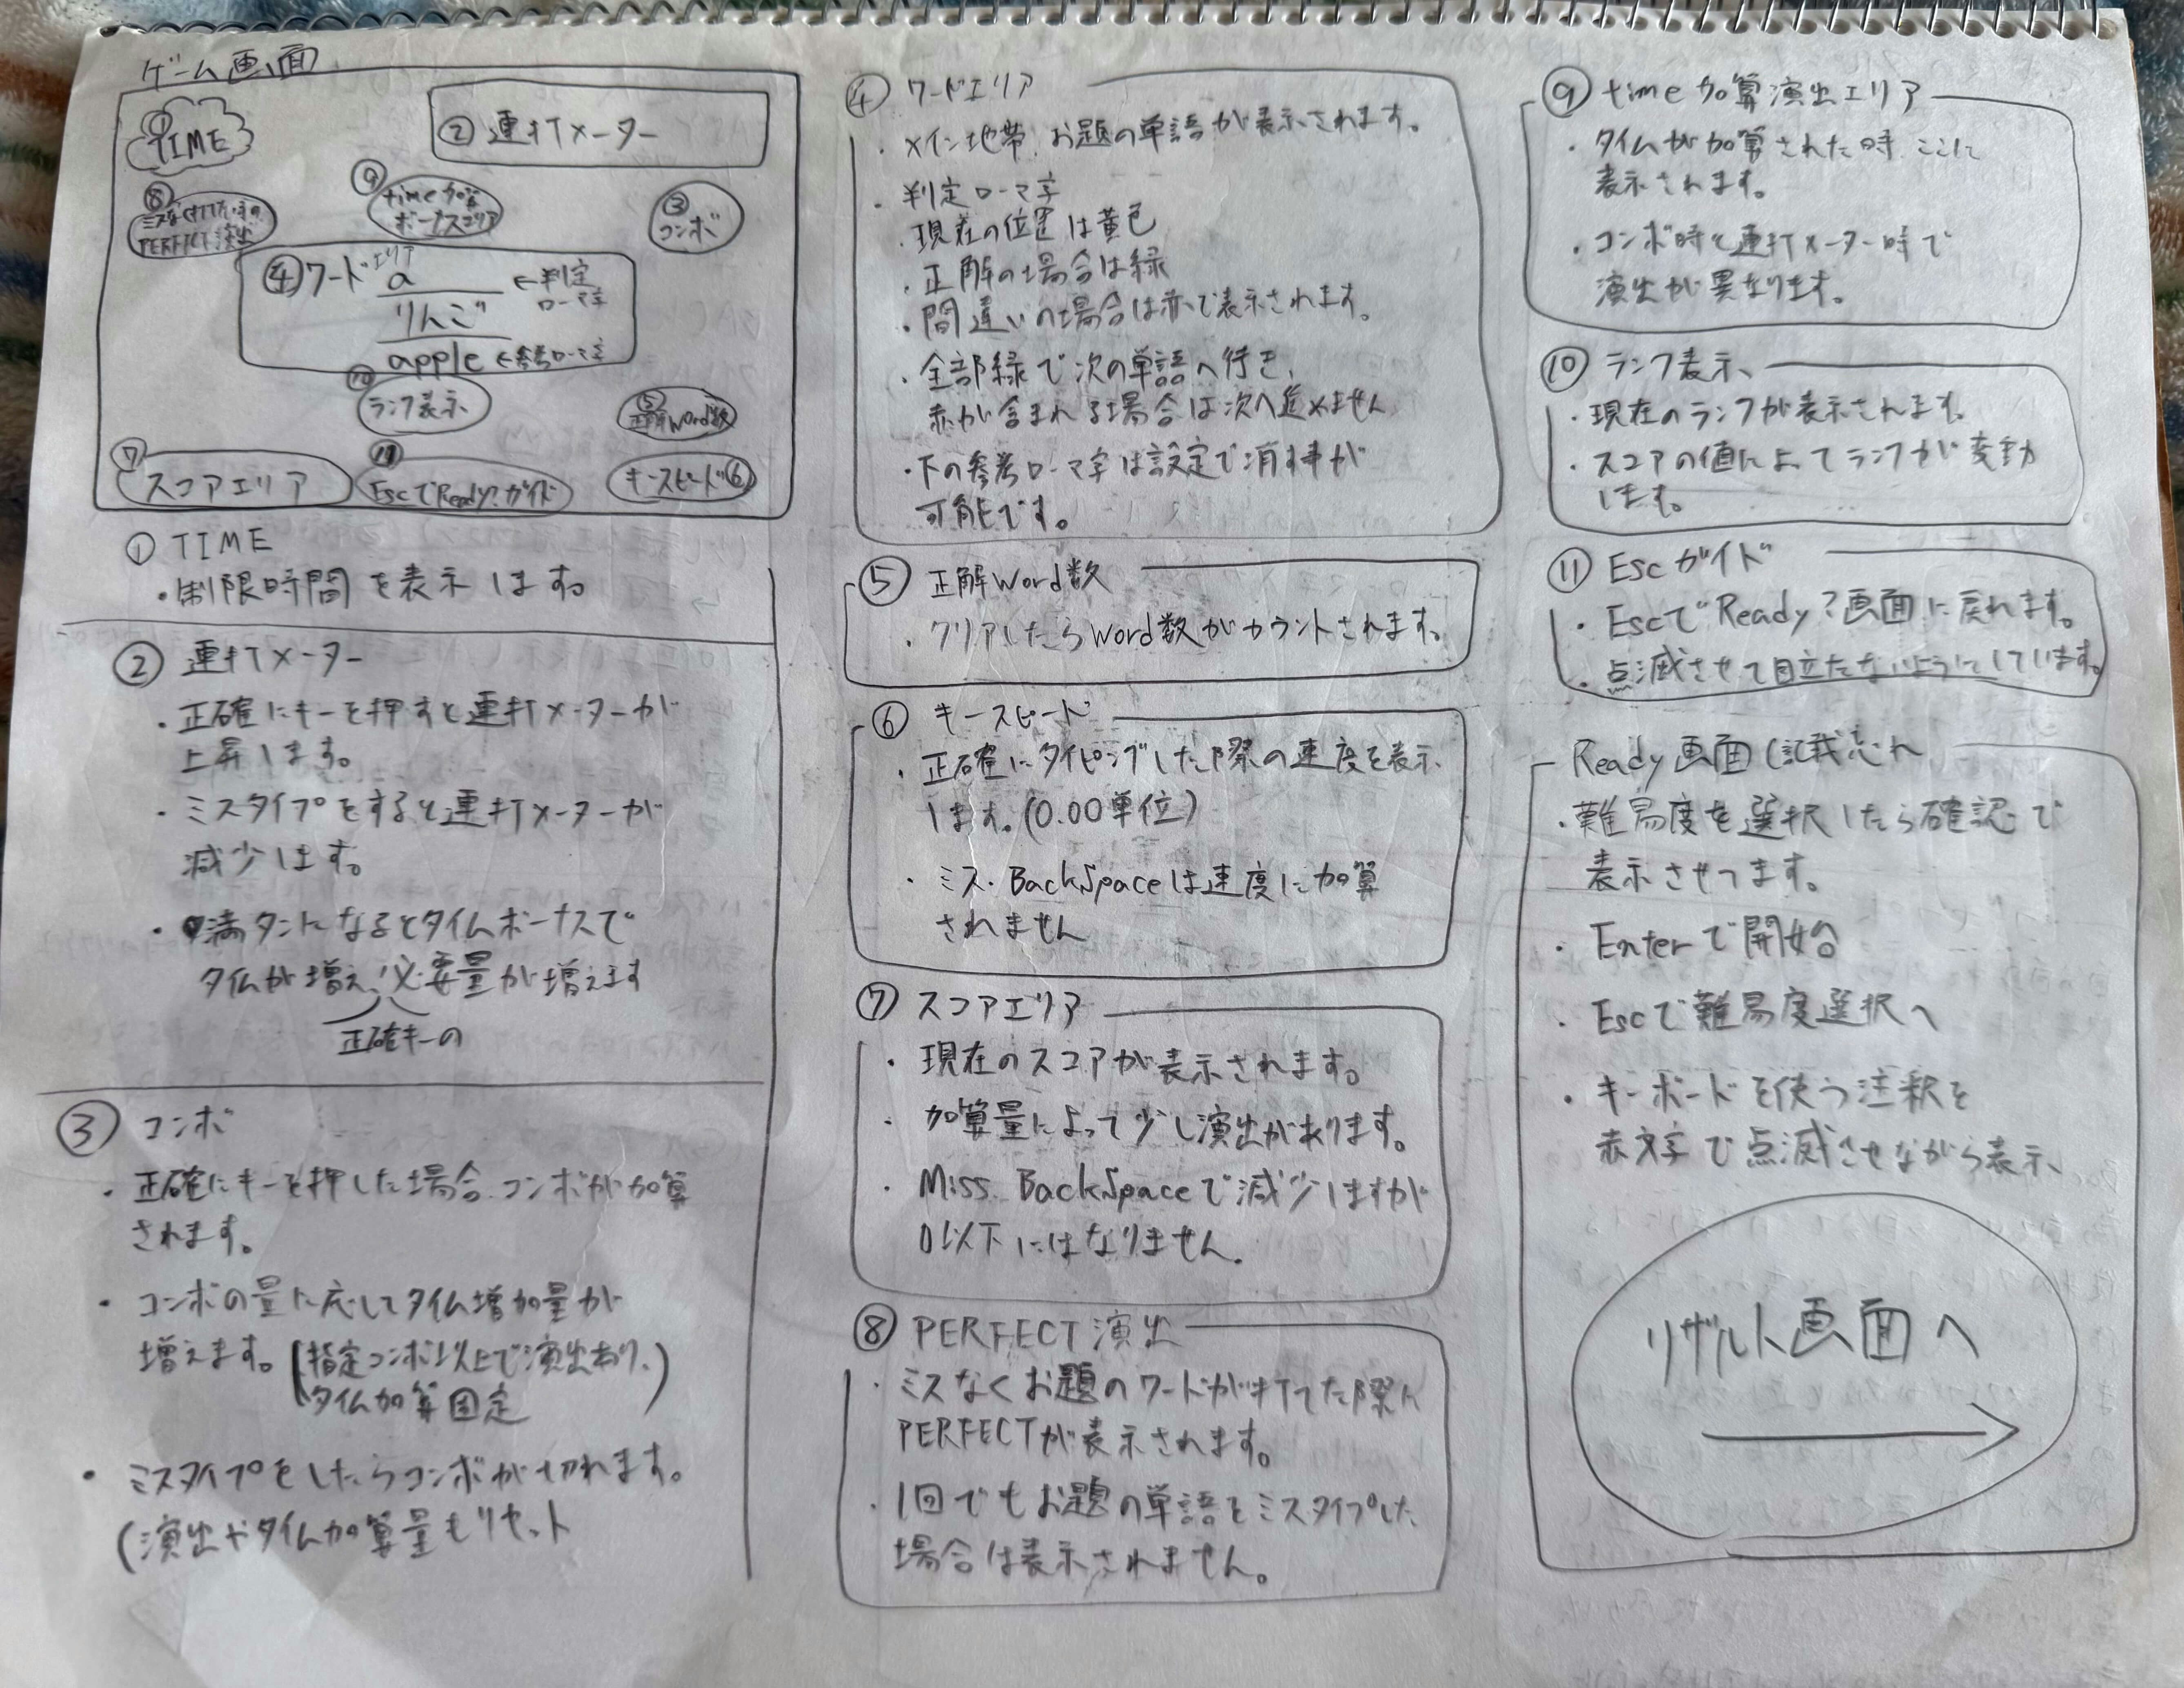 ゲーム画面
① TIME
② 連打メーター
⑧
ミスなく打てたときの
PERFECT演出
⑨
time加算
ボーナスエリア
③
コンボ
④ ワードエリア
a ←判定
ローマ字
りんご
apple ←参考ローマ字
⑩
ランク表示
⑤
正解Word数
⑦
スコアエリア
⑪
EscでReady?ガイド
キースピード⑥
① TIME
・制限時間を表示します。
② 連打メーター
・正確にキーを押すと連打メーターが
上昇します。
・ミスタイプをすると連打メーターが
減少します。
・満タンになるとタイムボーナスで
タイムが増え、必要量が増えます
正確キーの
③ コンボ
・正確にキーを押した場合、コンボが加算
されます。
・コンボの量に応じてタイム増加量が
増えます。(指定コンボ以上で演出あり、
タイム加算固定)
・ミスタイプをしたらコンボが切れます。
(演出やタイム加算量もリセット
④ ワードエリア
・メイン地帯、お題の単語が表示されます。
・判定ローマ字
・現在の位置は黄色
・正解の場合は緑
・間違いの場合は赤で表示されます。
・全部緑で次の単語へ行き、
赤が含まれる場合は次へ進めません
・下の参考ローマ字は設定で消す事が
可能です。
⑤ 正解Word数
・クリアしたらWord数がカウントされます。
⑥ キースピード
・正確にタイピングした際の速度を表示
します。(0.00単位)
・ミス・BackSpaceは速度に加算
されません
⑦ スコアエリア
・現在のスコアが表示されます。
・加算量によって少し演出があります。
・Miss BackSpaceで減少しますが
0以下にはなりません。
⑧ PERFECT演出
・ミスなくお題のワードが打てた際に
PERFECTが表示されます。
・1回でもお題の単語をミスタイプした
場合は表示されません。
⑨ time加算演出エリア
・タイムが加算された時、ここに
表示されます。
・コンボ時と連打メーター時で
演出が異なります。
⑩ ランク表示
・現在のランクが表示されます。
・スコアの値によってランクが変動
します。
⑪ Escガイド
・EscでReady?画面に戻れます。
・点滅させて目立たないようにしています。
Ready画面(記載忘れ
・難易度を選択したら確認で
表示させてます。
・Enterで開始
・Escで難易度選択へ
・キーボードを使う注釈を
赤文字で点滅させながら表示
リザルト画面へ
→